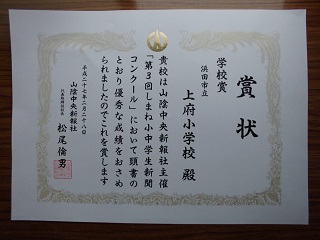 賞状
学校賞
浜田市立
上府小学校 殿
貴校は山陰中央新報社主催
「第3回しまね小中学生新聞
コンクール」において頭書の
とおり優秀な成績をおさめ
られましたのでこれを賞します
平成二十七年二月二十八日
山陰中央新報社
代表取締役社長 松尾倫男